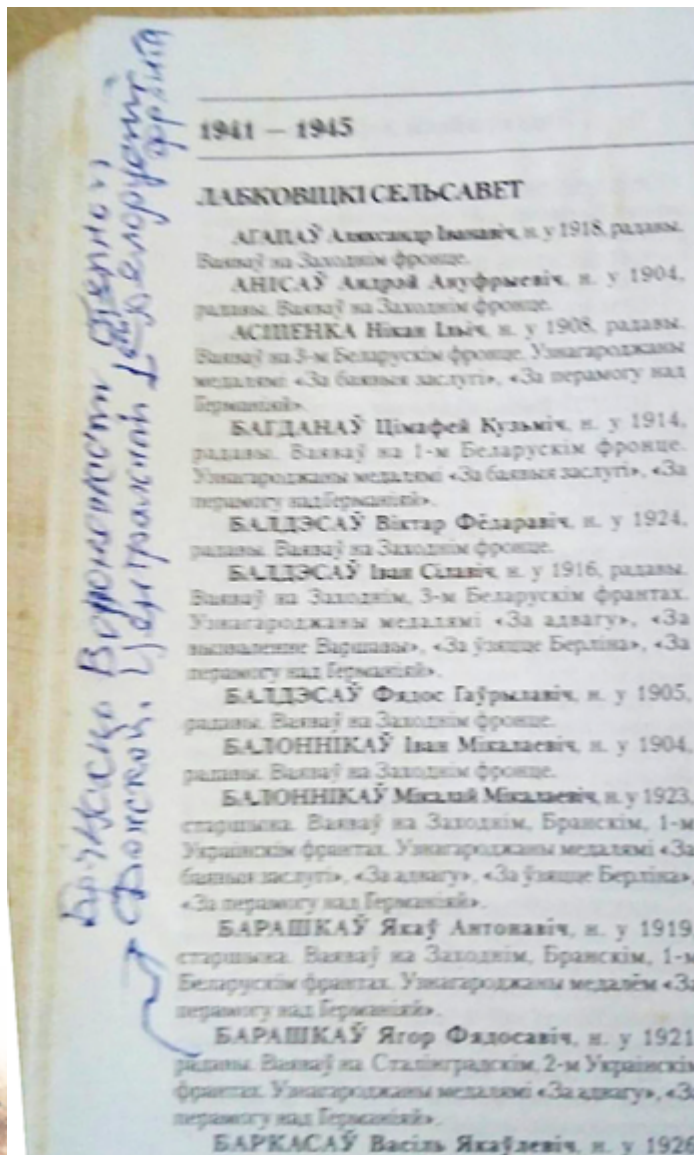 1941 — 1945
ЛАБКОВІЦКІ СЕЛЬСАВЕТ
АГАПАЎ Аляксандр Іванавіч, н. у 1918, радавы.
Ваяваў на Заходнім фронце.
АНІСАЎ Андрэй Ануфрыевіч, н. у 1904,
радавы. Ваяваў на Заходнім фронце.
АСІПЕНКА Нікан Ільіч, н. у 1908, радавы.
Ваяваў на 3-м Беларускім фронце. Узнагароджаны
медалямі «За баявыя заслугі», «За перамогу над
Германіяй».
БАГДАНАЎ Цімафей Кузьміч, н. у 1914,
радавы. Ваяваў на 1-м Беларускім фронце.
Узнагароджаны медалямі «За баявыя заслугі», «За
перамогу над Германіяй».
БАЛДЭСАЎ Віктар Фёдаравіч, н. у 1924,
радавы. Ваяваў на Заходнім фронце.
БАЛДЭСАЎ Іван Сілавіч, н. у 1916, радавы.
Ваяваў на Заходнім, 3-м Беларускім франтах.
Узнагароджаны медалямі «За адвагу», «За
вызваленне Варшавы», «За ўзяцце Берліна», «За
перамогу над Германіяй».
БАЛДЭСАЎ Фядос Гаўрылавіч, н. у 1905,
радавы. Ваяваў на Заходнім фронце.
БАЛОННІКАЎ Іван Мікалаевіч, н. у 1904,
радавы. Ваяваў на Заходнім фронце.
БАЛОННІКАЎ Мікалай Мікалаевіч, н. у 1923,
старшына. Ваяваў на Заходнім, Бранскім, 1-м
Украінскім франтах. Узнагароджаны медалямі «За
баявыя заслугі», «За адвагу», «За ўзяцце Берліна»,
«За перамогу над Германіяй».
БАРАШКАЎ Якаў Антонавіч, н. у 1919,
старшына. Ваяваў на Заходнім, Бранскім, 1-м
Беларускім франтах. Узнагароджаны медалём «За
перамогу над Германіяй».
БАРАШКАЎ Ягор Фядосавіч, н. у 1921,
радавы. Ваяваў на Сталінградскім, 2-м Украінскім
франтах. Узнагароджаны медалямі «За адвагу», «За
перамогу над Германіяй».
БАРКАСАЎ Васіль Якаўлевіч, н. у 1926
Воронежском Степном,
Донской, Центральной 1 Белоруст